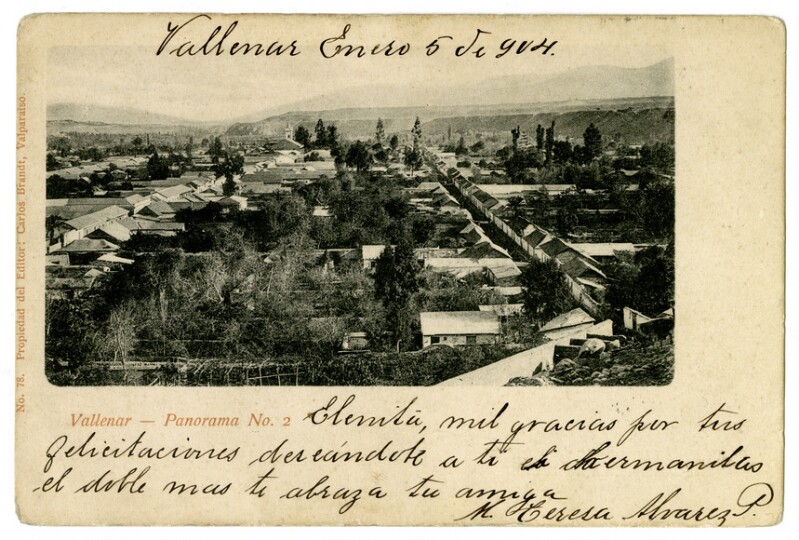 Vallenar Enero 5 de 904.
No. 78. Propiedad del Editor: Carlos Brandt, Valparaiso
Vallenar — Panorama No. 2
Elenita, mil gracias por tus
felicitaciones deseándote a ti
hermanitas
el doble mas te abraza tu amiga
M. Teresa Alvarez P.